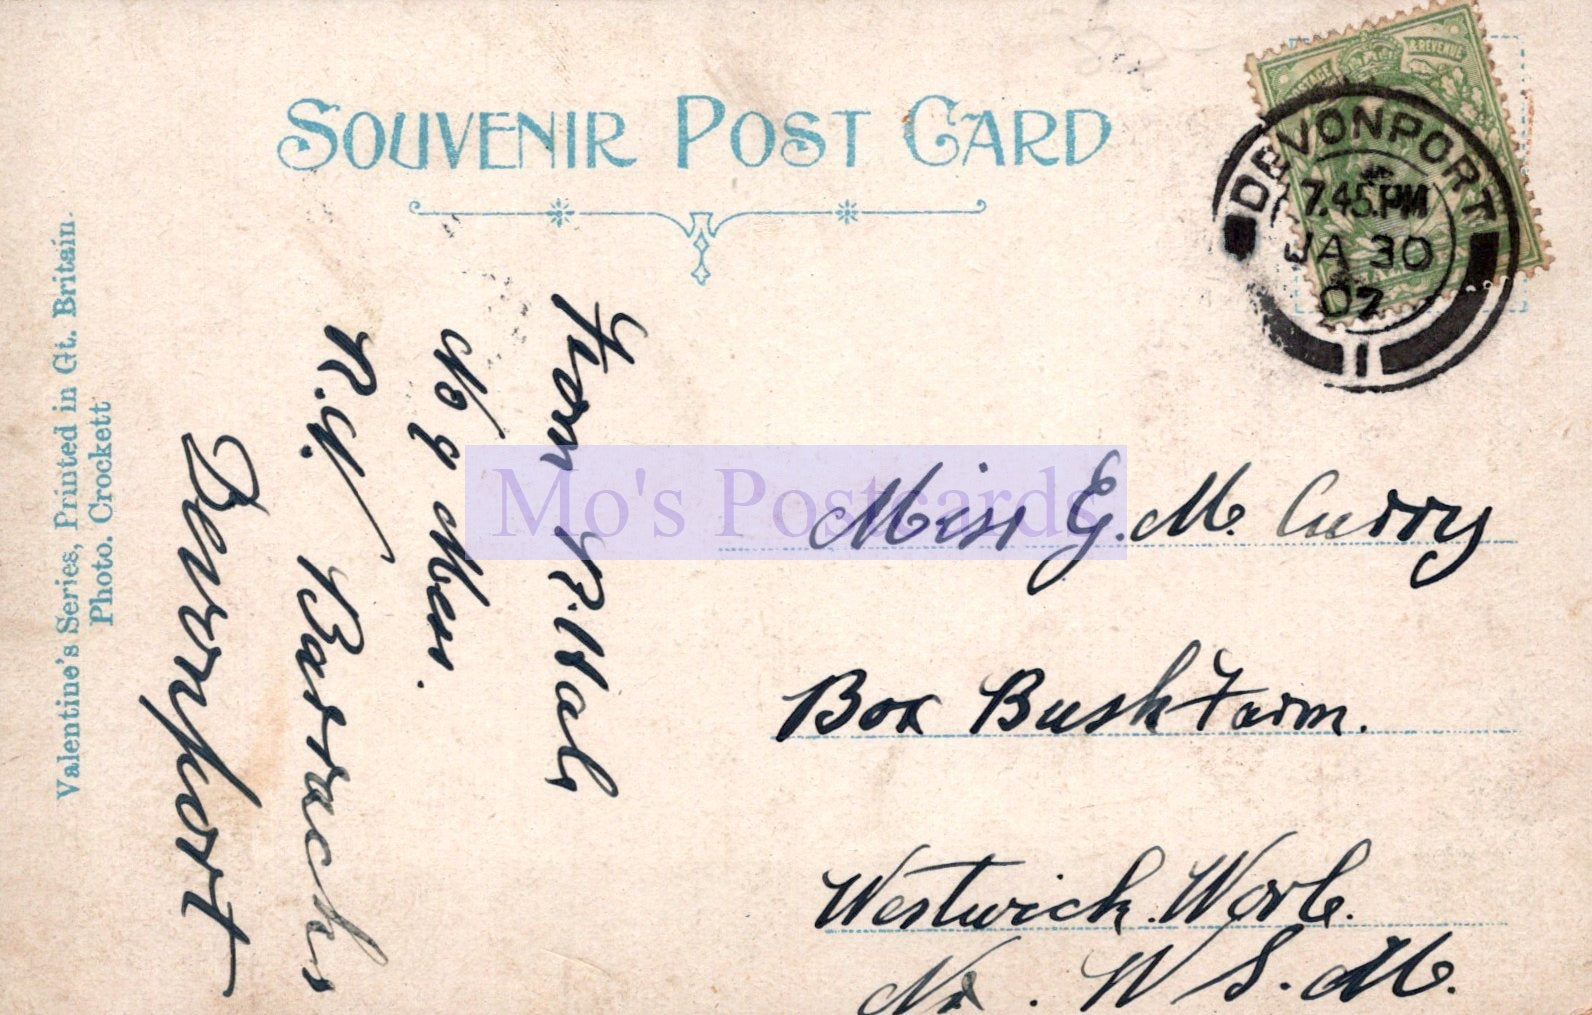 SOUVENIR POST CARD
POSTAGE & REVENUE
DEVONPORT
7.45.PM
JA 30
07
1
Valentine's Series, Printed in Gt. Britain.
Photo. Crockett
From P. Hale
No 9 Mess.
R.N. Barracks
Devonport
Mo's Postcards
Miss E. M. Curry
Box Bush Farm.
Westwick. Worle.
Nr. W S. M.